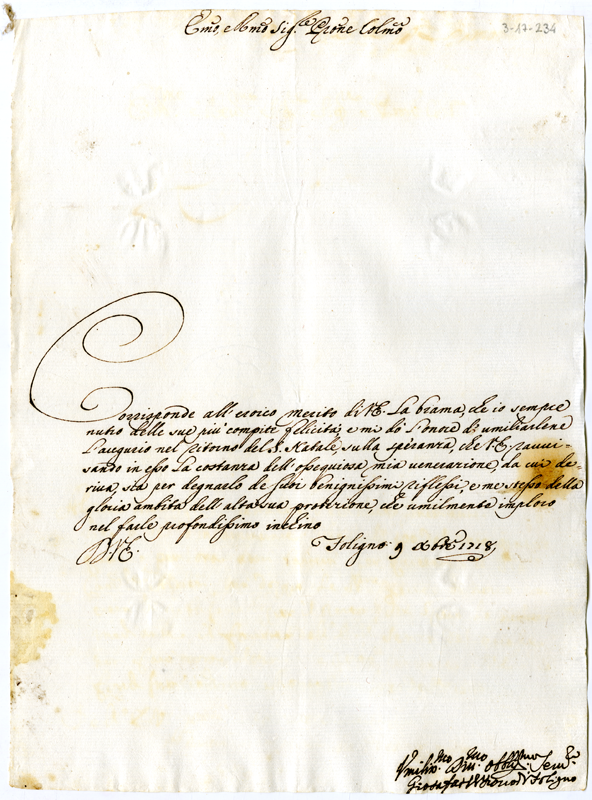 Emo, e Rmo Sig.re Prone Colmo
3-17-234
Corrisponde all'eroico merito di V.E. La brama, che io sempre
nutro delle sue più compite felicità; e mi dò l'onore di umiliarlene
l'augurio nel ritorno del S. Natale, sulla speranza, che V.E. ravvi-
sando in esso La costanza dell'ossequiosa mia venerazione, da cui de-
riva, sia per degnarlo de suoi benignissimi riflessi, e me stesso della
gloria ambita dell'alta sua protezione, che umilmente imploro
nel farle profondissimo inclino
D.V.E. Foligno 9 Xbre 1718,
Umilis.mo Dev.mo Obbl.mo Serv.re
Giosafat Vescovo di Foligno